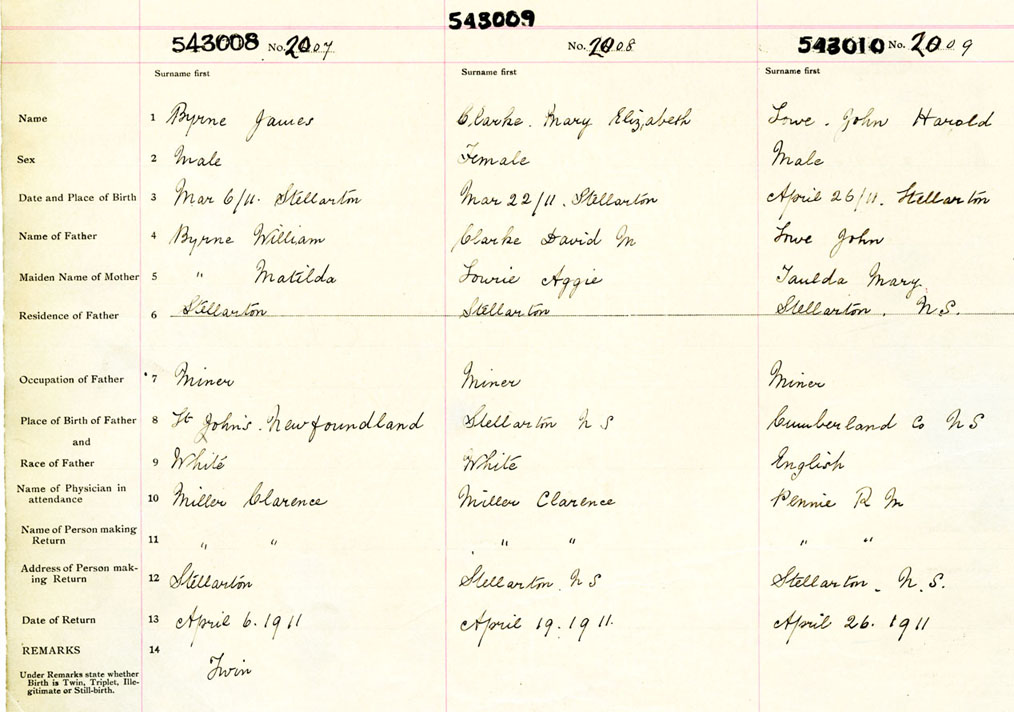 543009
543008 No. 2007 No. 2008 543010 No. 2009
Surname first Surname first Surname first
Name 1 Byrne James Clarke. Mary Elizabeth Lowe. John Harold
Sex 2 Male Female Male
Date and Place of Birth 3 Mar 6/11. Stellarton Mar 22/11. Stellarton April 26/11. Stellarton
Name of Father 4 Byrne William Clarke David M Lowe John
Maiden Name of Mother 5 " Matilda Lowrie Aggie Mary
Residence of Father 6 Stellarton Stellarton Stellarton. N.S.
Occupation of Father 7 Miner Miner Miner
Place of Birth of Father 8 St John's. Newfoundland Stellarton N S Cumberland Co N S
and
Race of Father 9 White White English
Name of Physician in
attendance 10 Miller Clarence Miller Clarence Pennie R M
Name of Person making
Return 11 " " " " " "
Address of Person mak-
ing Return 12 Stellarton Stellarton N S Stellarton. N.S.
Date of Return 13 April 6. 1911 April 19. 1911. April 26. 1911
REMARKS 14
Twin
Under Remarks state whether
Birth is Twin, Triplet, Ille-
gitimate or Still-birth.